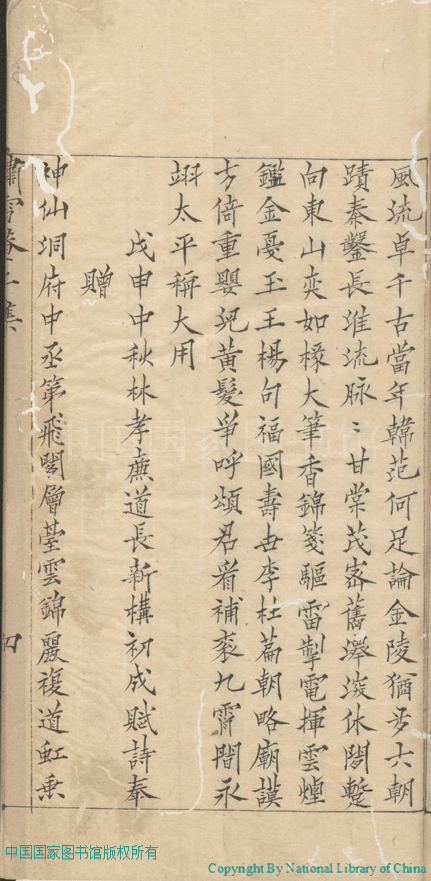 風流卓千古當年韓范何足論金陵猶步六朝
蹟秦鑿長淮流脉〻甘棠茂宻舊澤深休問蹔
向東山奕如椽大筆香錦箋驅雷掣電揮雲煙
鑑金戞玉王楊句福國壽世李杜篇朝略廟謨
方倚重嬰兒黃髮爭呼頌君看補袞九霄間永
翊太平稱大用
戊申中秋林孝廉道長新構初成賦詩奉
贈
神仙洞府中丞第飛閣層臺雲錦麗複道虹垂
四
中国国家图书馆版权所有
Copyright By National Library of China